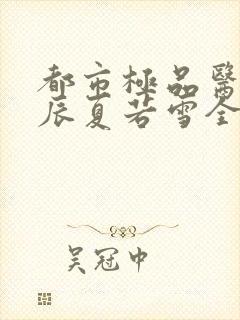 都市極品醫
辰夏若雪全
吳冠中